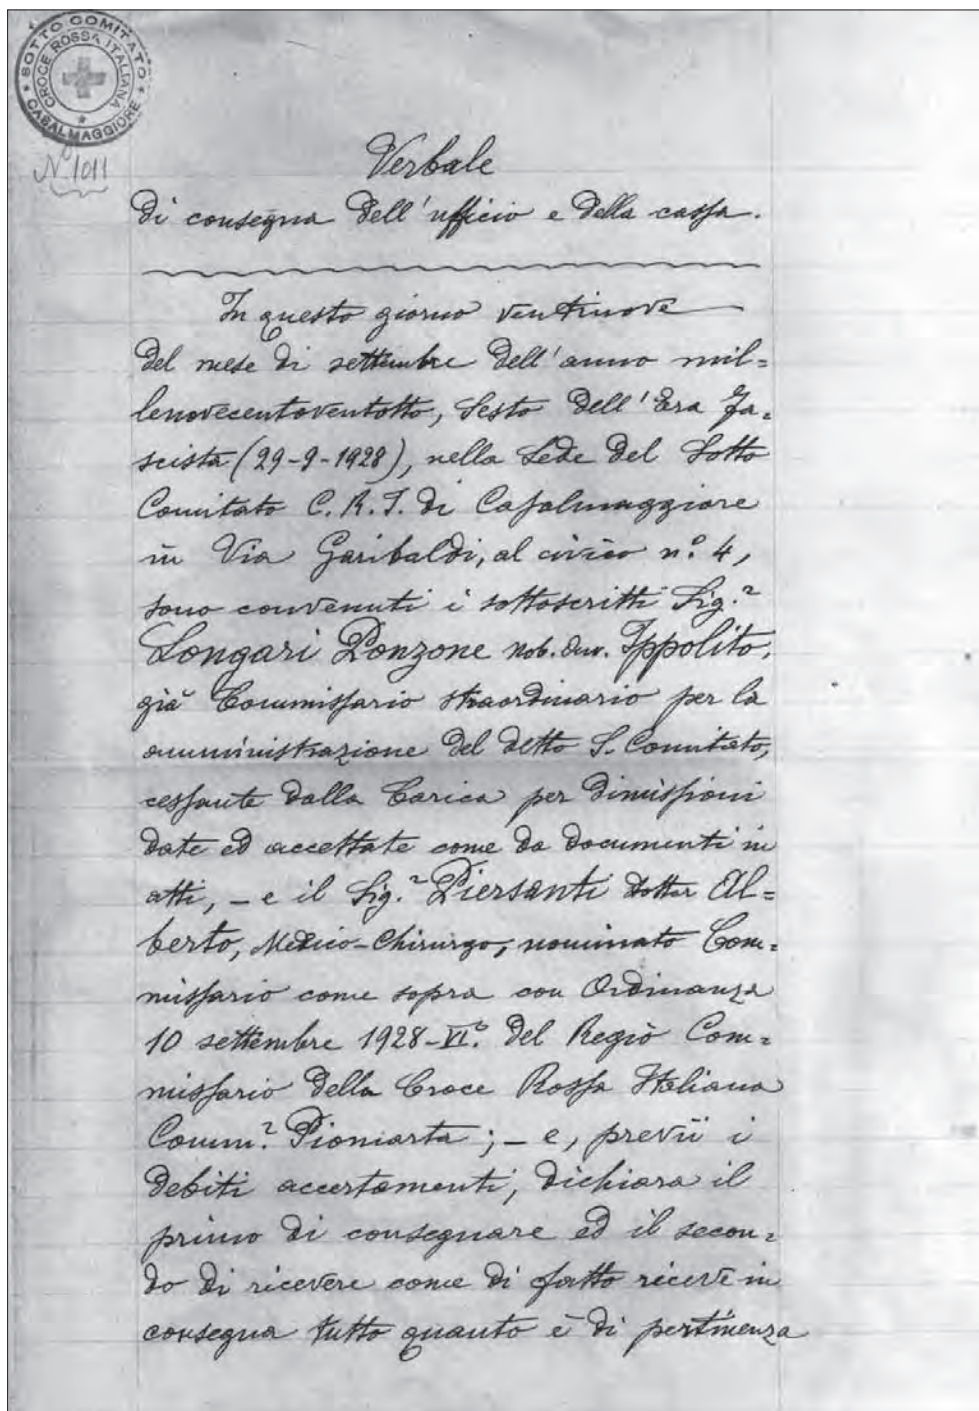 SOTTO COMITATO
CASALMAGGIORE
CROCE ROSSA ITALIANA
Nº 1011
Verbale
di consegna dell'ufficio e della cassa.
In questo giorno ventinove
del mese di settembre dell'anno mil=
lenovecentoventotto, Sesto dell'Era Fa=
scista (29-9-1928), nella Sede del Sotto
Comitato C. R. I. di Casalmaggiore
in Via Garibaldi, al civico n.º 4,
sono convenuti i sottoscritti Sig.r
Longari Ponzone nob. Ippolito,
già Commissario straordinario per la
amministrazione del detto S. Comitato,
cessante dalla Carica per dimissioni
date ed accettate come da documenti in
atti, - e il Sig.r Piersanti dottor Al=
berto, Medico-Chirurgo, nominato Com=
missario come sopra con Ordinanza
10 settembre 1928-VIº. del Regio Com=
missario della Croce Rossa Italiana
Comm.r ; - e, previi i
debiti accertamenti, dichiara il
primo di consegnare ed il secon=
do di ricevere come di fatto riceve in
consegna tutto quanto è di pertinenza